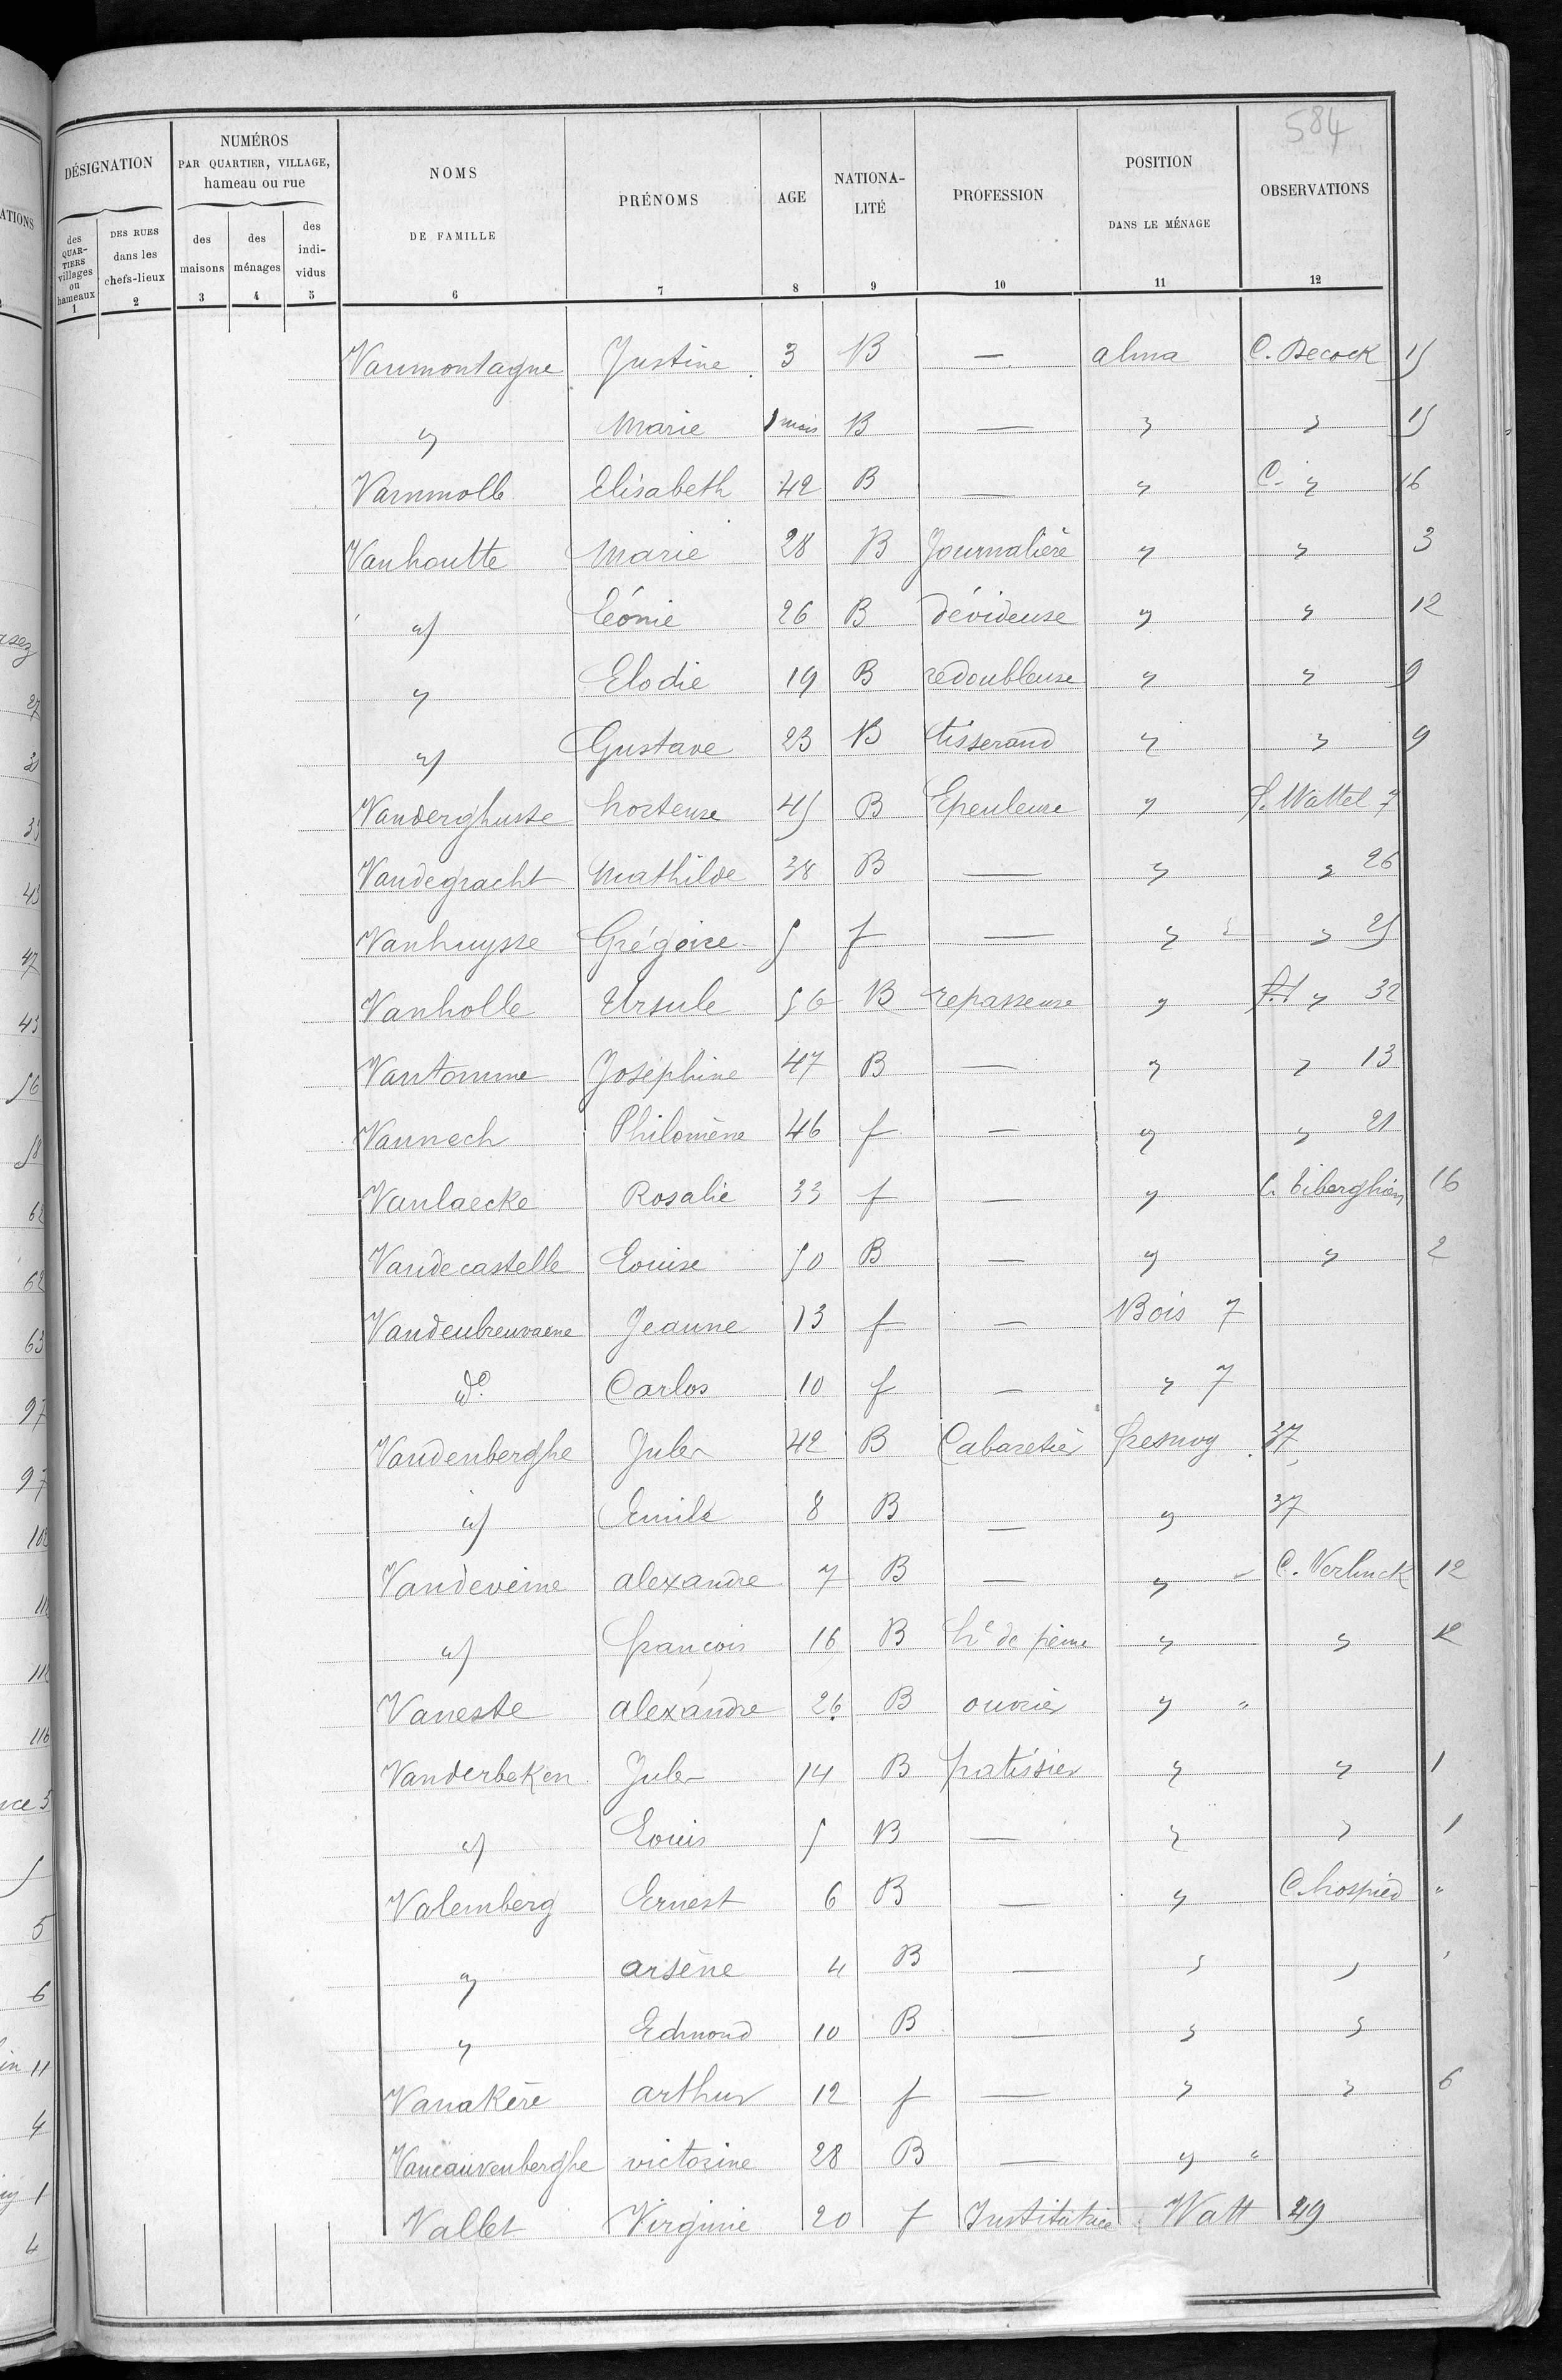 584
DÉSIGNATION
NUMÉROS
PAR QUARTIER, VILLAGE,
hameau ou rue
NOMS
DE FAMILLE
PRÉNOMS
AGE
NATIONA-
LITÉ
PROFESSION
POSITION
DANS LE MÉNAGE
OBSERVATIONS
des
QUAR-
TIERS
villages
ou
hameaux
DES RUES
dans les
chefs-lieux
des
maisons
des
ménages
des
indi-
vidus
1 2 3 4 5 6 7 8 9 10 11 12
Vanmontagne Justine 3 B — alma C. Decock 15
" Marie 1 mois B — " " 15
Vammolle Elisabeth 42 B — " C. " 16
Vanhoutte Marie 28 B Journalière " " 3
" Léonie 26 B dévideuse " " 12
" Elodie 19 B redoubleuse " " 9
" Gustave 23 B tisserand " " 9
Vanderghuste hortense 45 B Epeuleuse " f. Wattel 7
Vandegracht Mathilde 38 B — " " 26
Vanhuysse Grégoire 5 f — " " 25
Vanholle Ursule 56 B repasseuse " " 32
Vantomme Joséphine 47 B — " " 13
Vannech Philomène 46 f — " " 21
Vanlaecke Rosalie 33 f — " C. Tiberghien 16
Vandecastelle Louise 50 B — " " 2
Vandenbreuvaene Jeanne 13 f — Bois 7
do Carlos 10 f — " 7
Vandenberghe Jules 42 B Cabaretier fresnoy 37
" Emile 8 B — " 37
Vandeveine alexandre 7 B — " C. Verlinck 12
" françois 16 B hr de peine " " 12
Vaneste alexandre 26 B ouvrier " "
Vanderbeken Jules 14 B patissier " " 1
" Louis 5 B — " " 1
Valemberg Ernest 6 B — " C. hospied "
" arsène 4 B — " " "
" Edmond 10 B — " "
Vanakère arthur 12 f — " " 6
Vancauvenberghe victorine 28 B — " "
Vallet Virginie 20 f Institutrice Watt 49